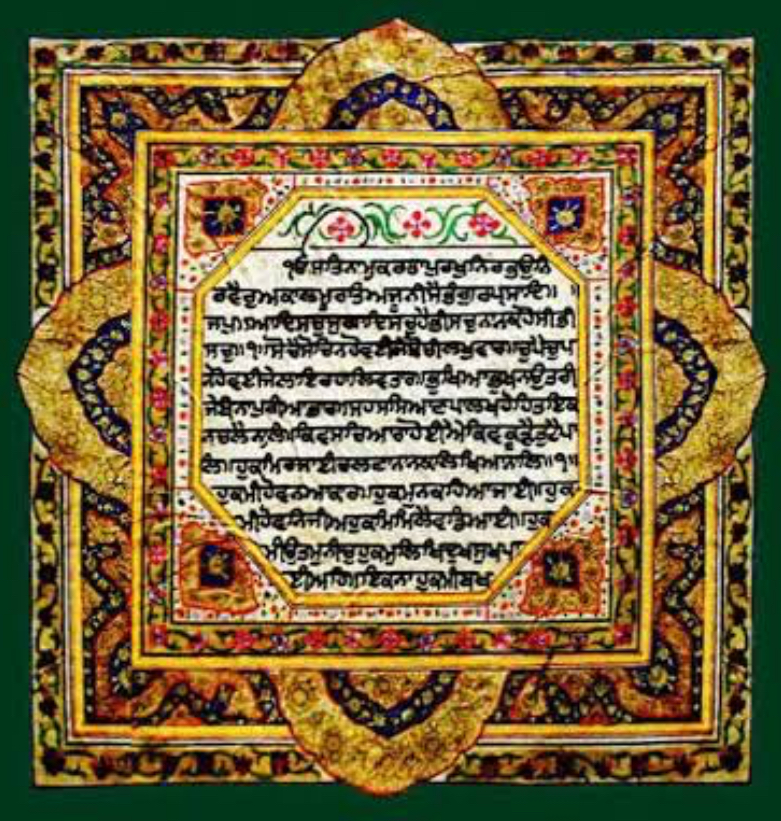 ੴਸਤਿਨਾਮੁਕਰਤਾਪੁਰਖੁਨਿਰਭਉਨਿ
ਰਵੈਰੁਅਕਾਲਮੂਰਤਿਅਜੂਨੀਸੈਭੰਗੁਰਪ੍ਰਸਾਦਿ॥ ॥
ਜਪੁ॥ਆਦਿਸਚੁਜੁਗਾਦਿਸਚੁਹੈਭੀਸਚੁਨਾਨਕਹੋਸੀਭੀ
ਸਚੁ॥੧॥ਸੋਚੈਸੋਚਿਨਹੋਵਈਜੇਸੋਚੀਲਖਵਾਰ॥ਚੁਪੈਚੁਪ
ਨਹੋਵਈਜੇਲਾਇਰਹਾਲਿਵਤਾਰ॥ਭੁਖਿਆਭੁਖਨਉਤਰੀ
ਜੇਬੰਨਾਪੁਰੀਆਭਾਰ॥ਸਹਸਸਿਆਣਪਾਲਖਹੋਹਿਤਇਕ
ਨਚਲੈਨਾਲਿ॥ਕਿਵਸਚਿਆਰਾਹੋਈਐਕਿਵਕੂੜੈਤੁਟੈਪਾ
ਲਿ॥ਹੁਕਮਿਰਜਾਈਚਲਣਾਨਾਨਕਲਿਖਿਆਨਾਲਿ॥੧॥
ਹੁਕਮੀਹੋਵਨਿਆਕਾਰ॥ਹੁਕਮੁਨਕਹਿਆਜਾਈ॥ਹੁਕ
ਮੀਹੋਵਨਿਜੀਅਹੁਕਮਿਮਿਲੈਵਡਿਆਈ॥ਹੁਕ
ਮੀਉਤਮੁਨੀਚੁਹੁਕਮਿਲਿਖਿਦੁਖਸੁਖਪਾ
ਈਅਹਿ॥ਇਕਨਾਹੁਕਮੀਬਖ